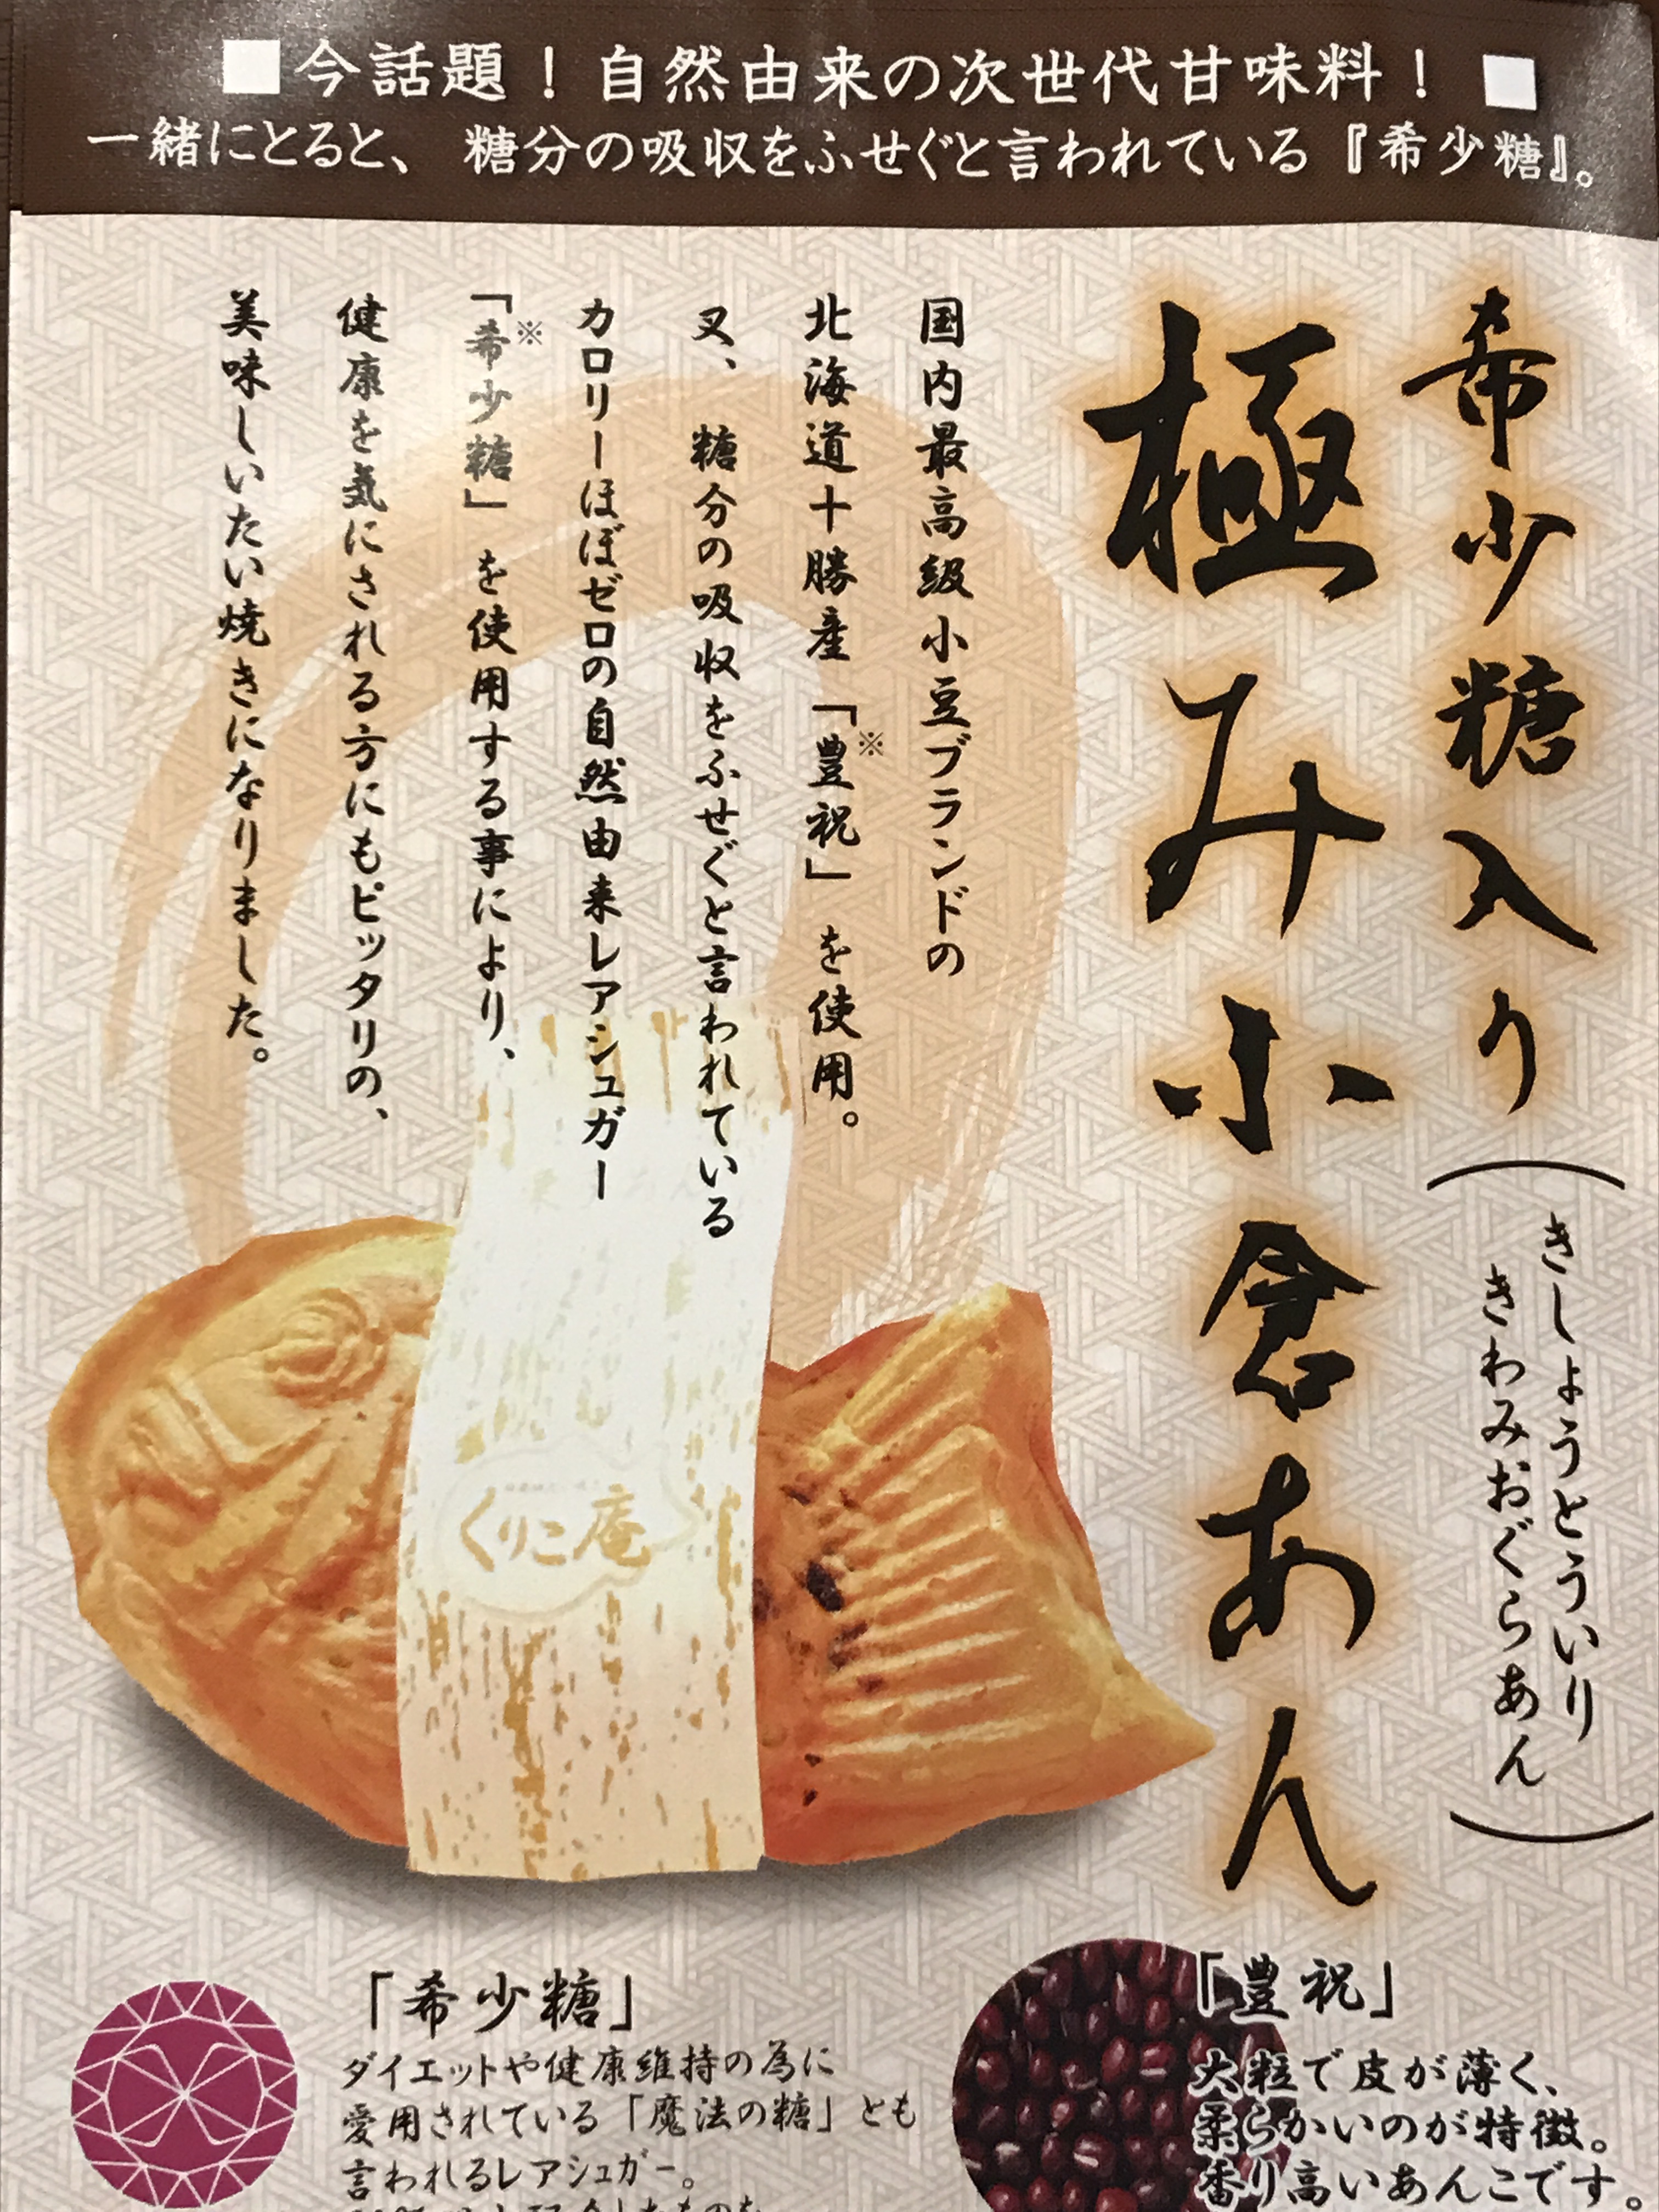 ■今話題！自然由来の次世代甘味料！■
一緒にとると、糖分の吸収をふせぐと言われている『希少糖』。
希少糖入り
（きしょうとういり
きわみおぐらあん）
極み小倉あん
国内最高級小豆ブランドの
北海道十勝産「豊祝」を使用。
※
又、糖分の吸収をふせぐと言われている
カロリーほぼゼロの自然由来レアシュガー
「希少糖」を使用する事により、
※
健康を気にされる方にもピッタリの、
美味しいたい焼きになりました。
くりこ庵
「希少糖」
ダイエットや健康維持の為に
愛用されている「魔法の糖」とも
言われるレアシュガー。
「豊祝」
大粒で皮が薄く、
柔らかいのが特徴。
香り高いあんこです。